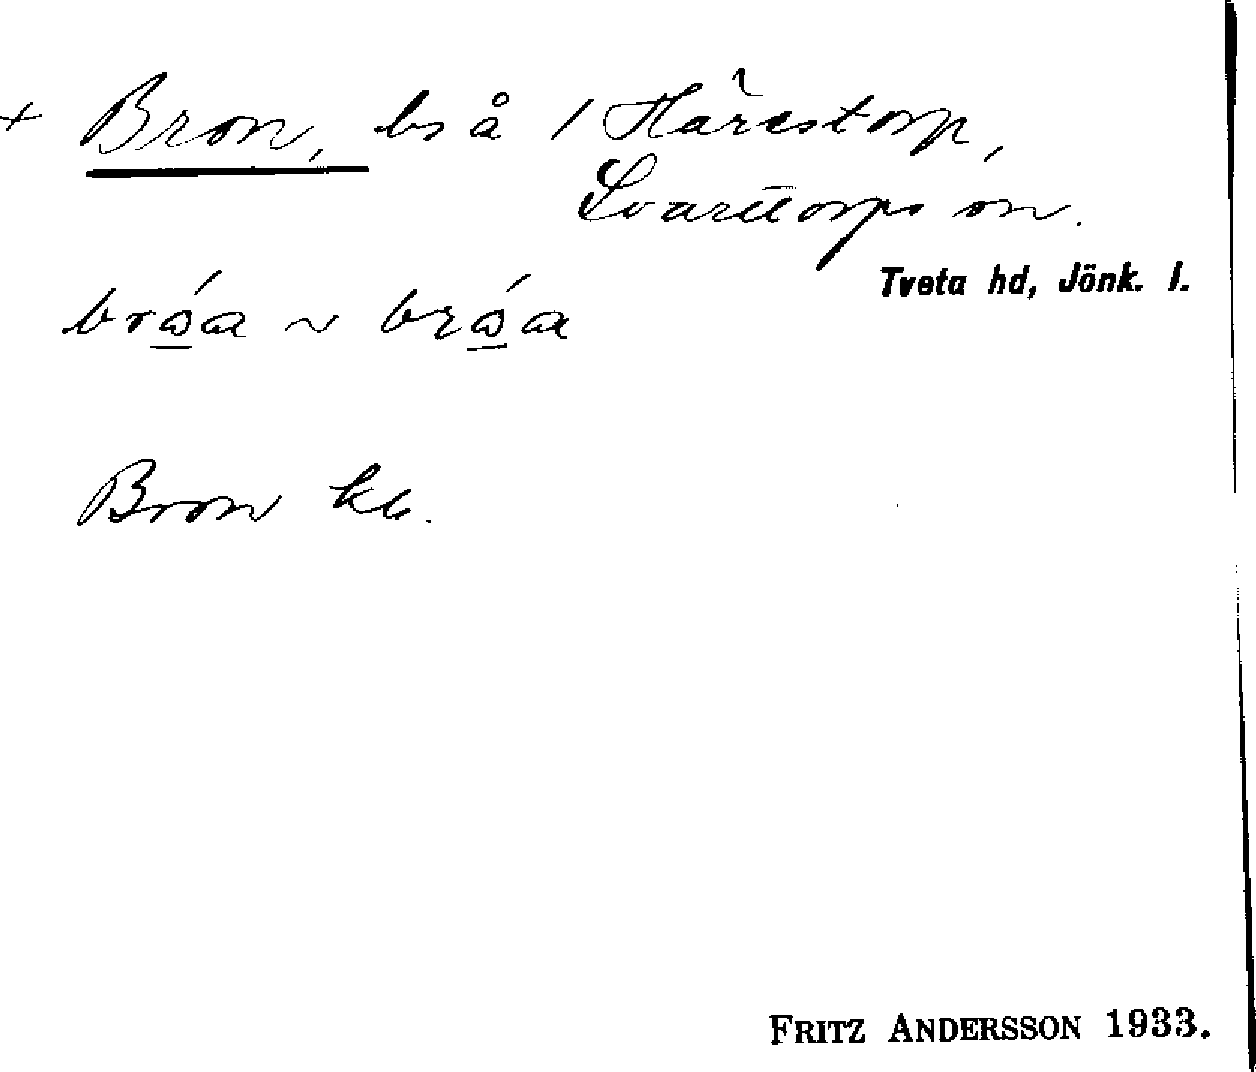 + Bron, bs å 1 Härestorp,
Svarttorps sn.
Tveta hd, Jönk. l.
bróa ~ bróa
Bron kb.
FRITZ ANDERSSON 1933.